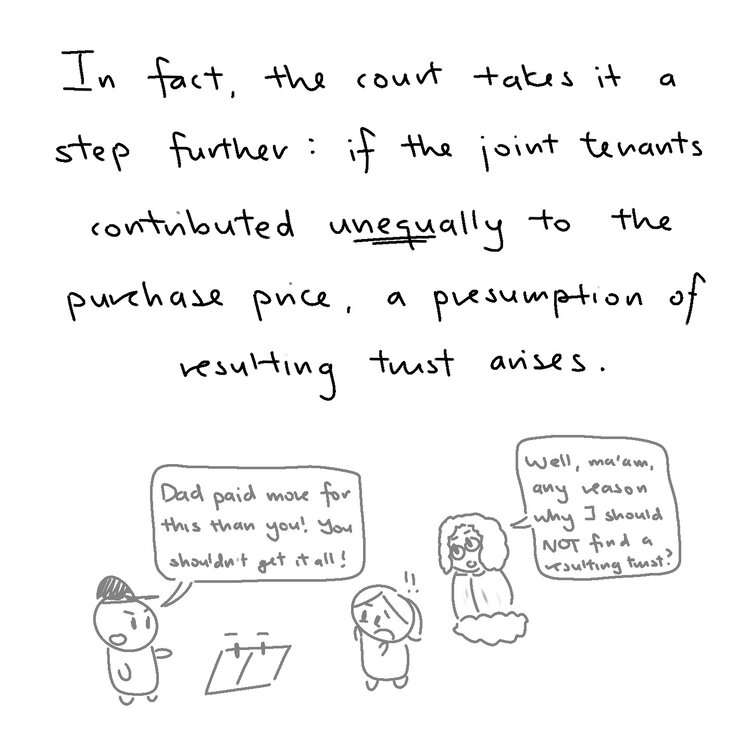 In fact, the court takes it a
step further: if the joint tenants
contributed unequally to the
purchase price, a presumption of
resulting trust arises.
Dad paid more for
this than you! You
shouldn't get it all!
!!
Well, ma'am,
any reason
why I should
NOT find a
resulting trust?